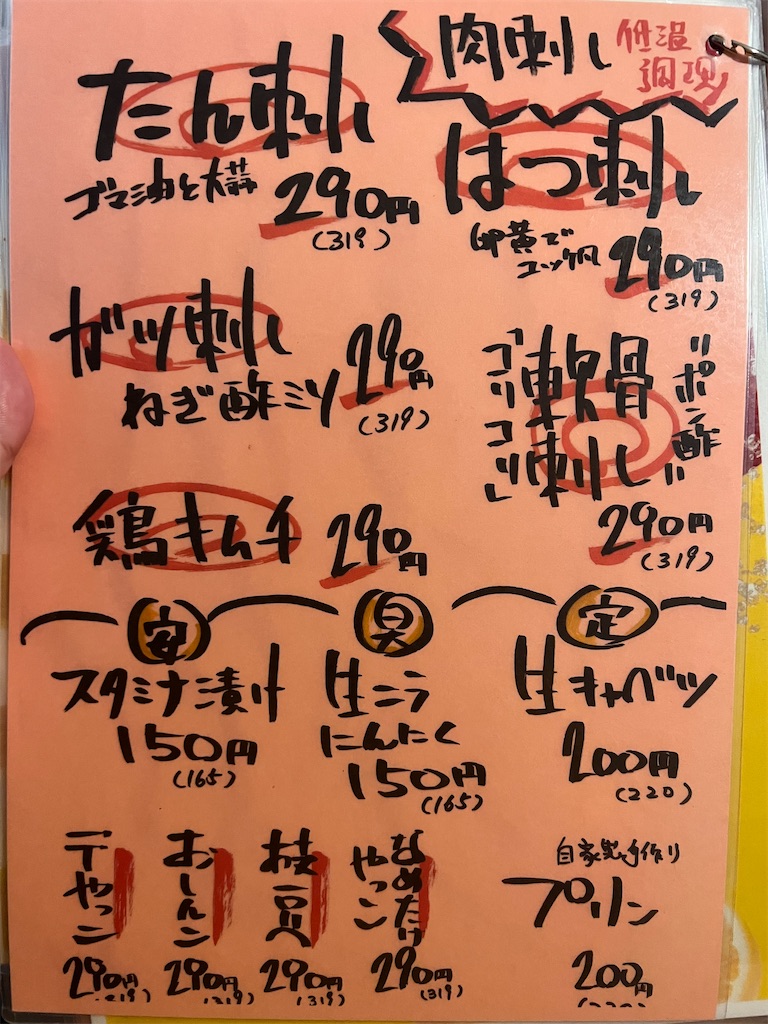 肉刺し
低温
調理
たん刺し
ゴマ油と大蒜
290円
(319)
はつ刺し
卵黄で
ユッケ風
290円
(319)
ガツ刺し
ねぎ酢ミソ
290円
(319)
コリコリ
軟骨
刺し
"ポン酢"
290円
(319)
鶏キムチ
290円
安
スタミナ漬け
150円
(165)
臭
生ニラ
にんにく
150円
(165)
定
生キャベツ
200円
(220)
やっこ
290円
(319)
おしんこ
290円
(319)
枝豆
290円
(319)
なめたけ
やっこ
290円
(319)
自家製手作り
プリン
200円
(220)